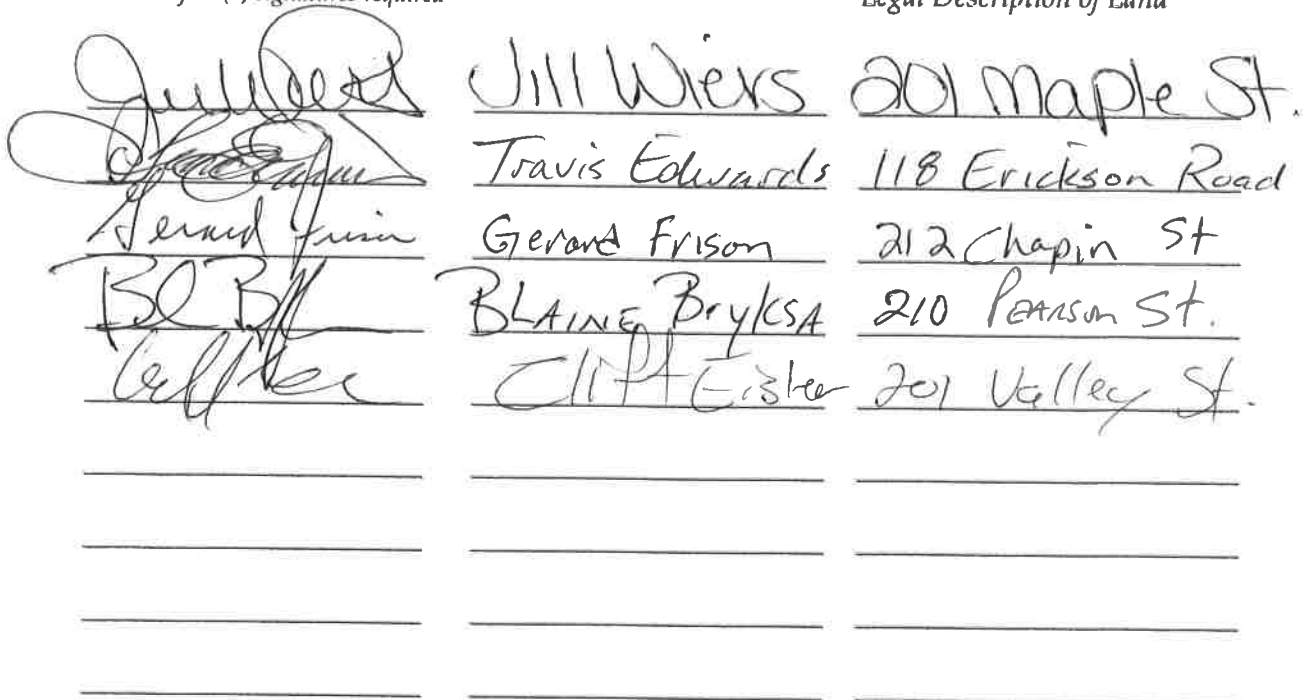 (s) signatures required Legal Description of Land
Jill Wiers Jill Wiers 201 Maple St.
Travis Edwards 118 Erickson Road
Gerard Frison Gerard Frison 212 Chapin St
BLAINE BrykSA 210 PEARSON St.
Cliff 201 Valley St.